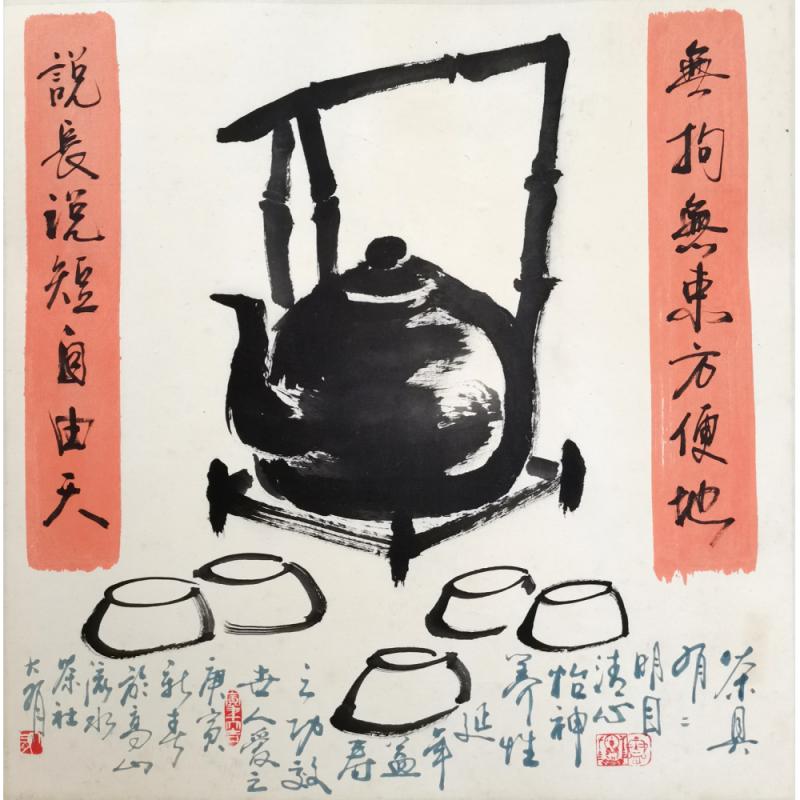 無拘無束方便地
説長说短自由天
茶具
有
明目
清心
怡神
养性
延
年
益
寿
之功效
世人愛之
庚寅
新春
於高山
流水
茶社
大有